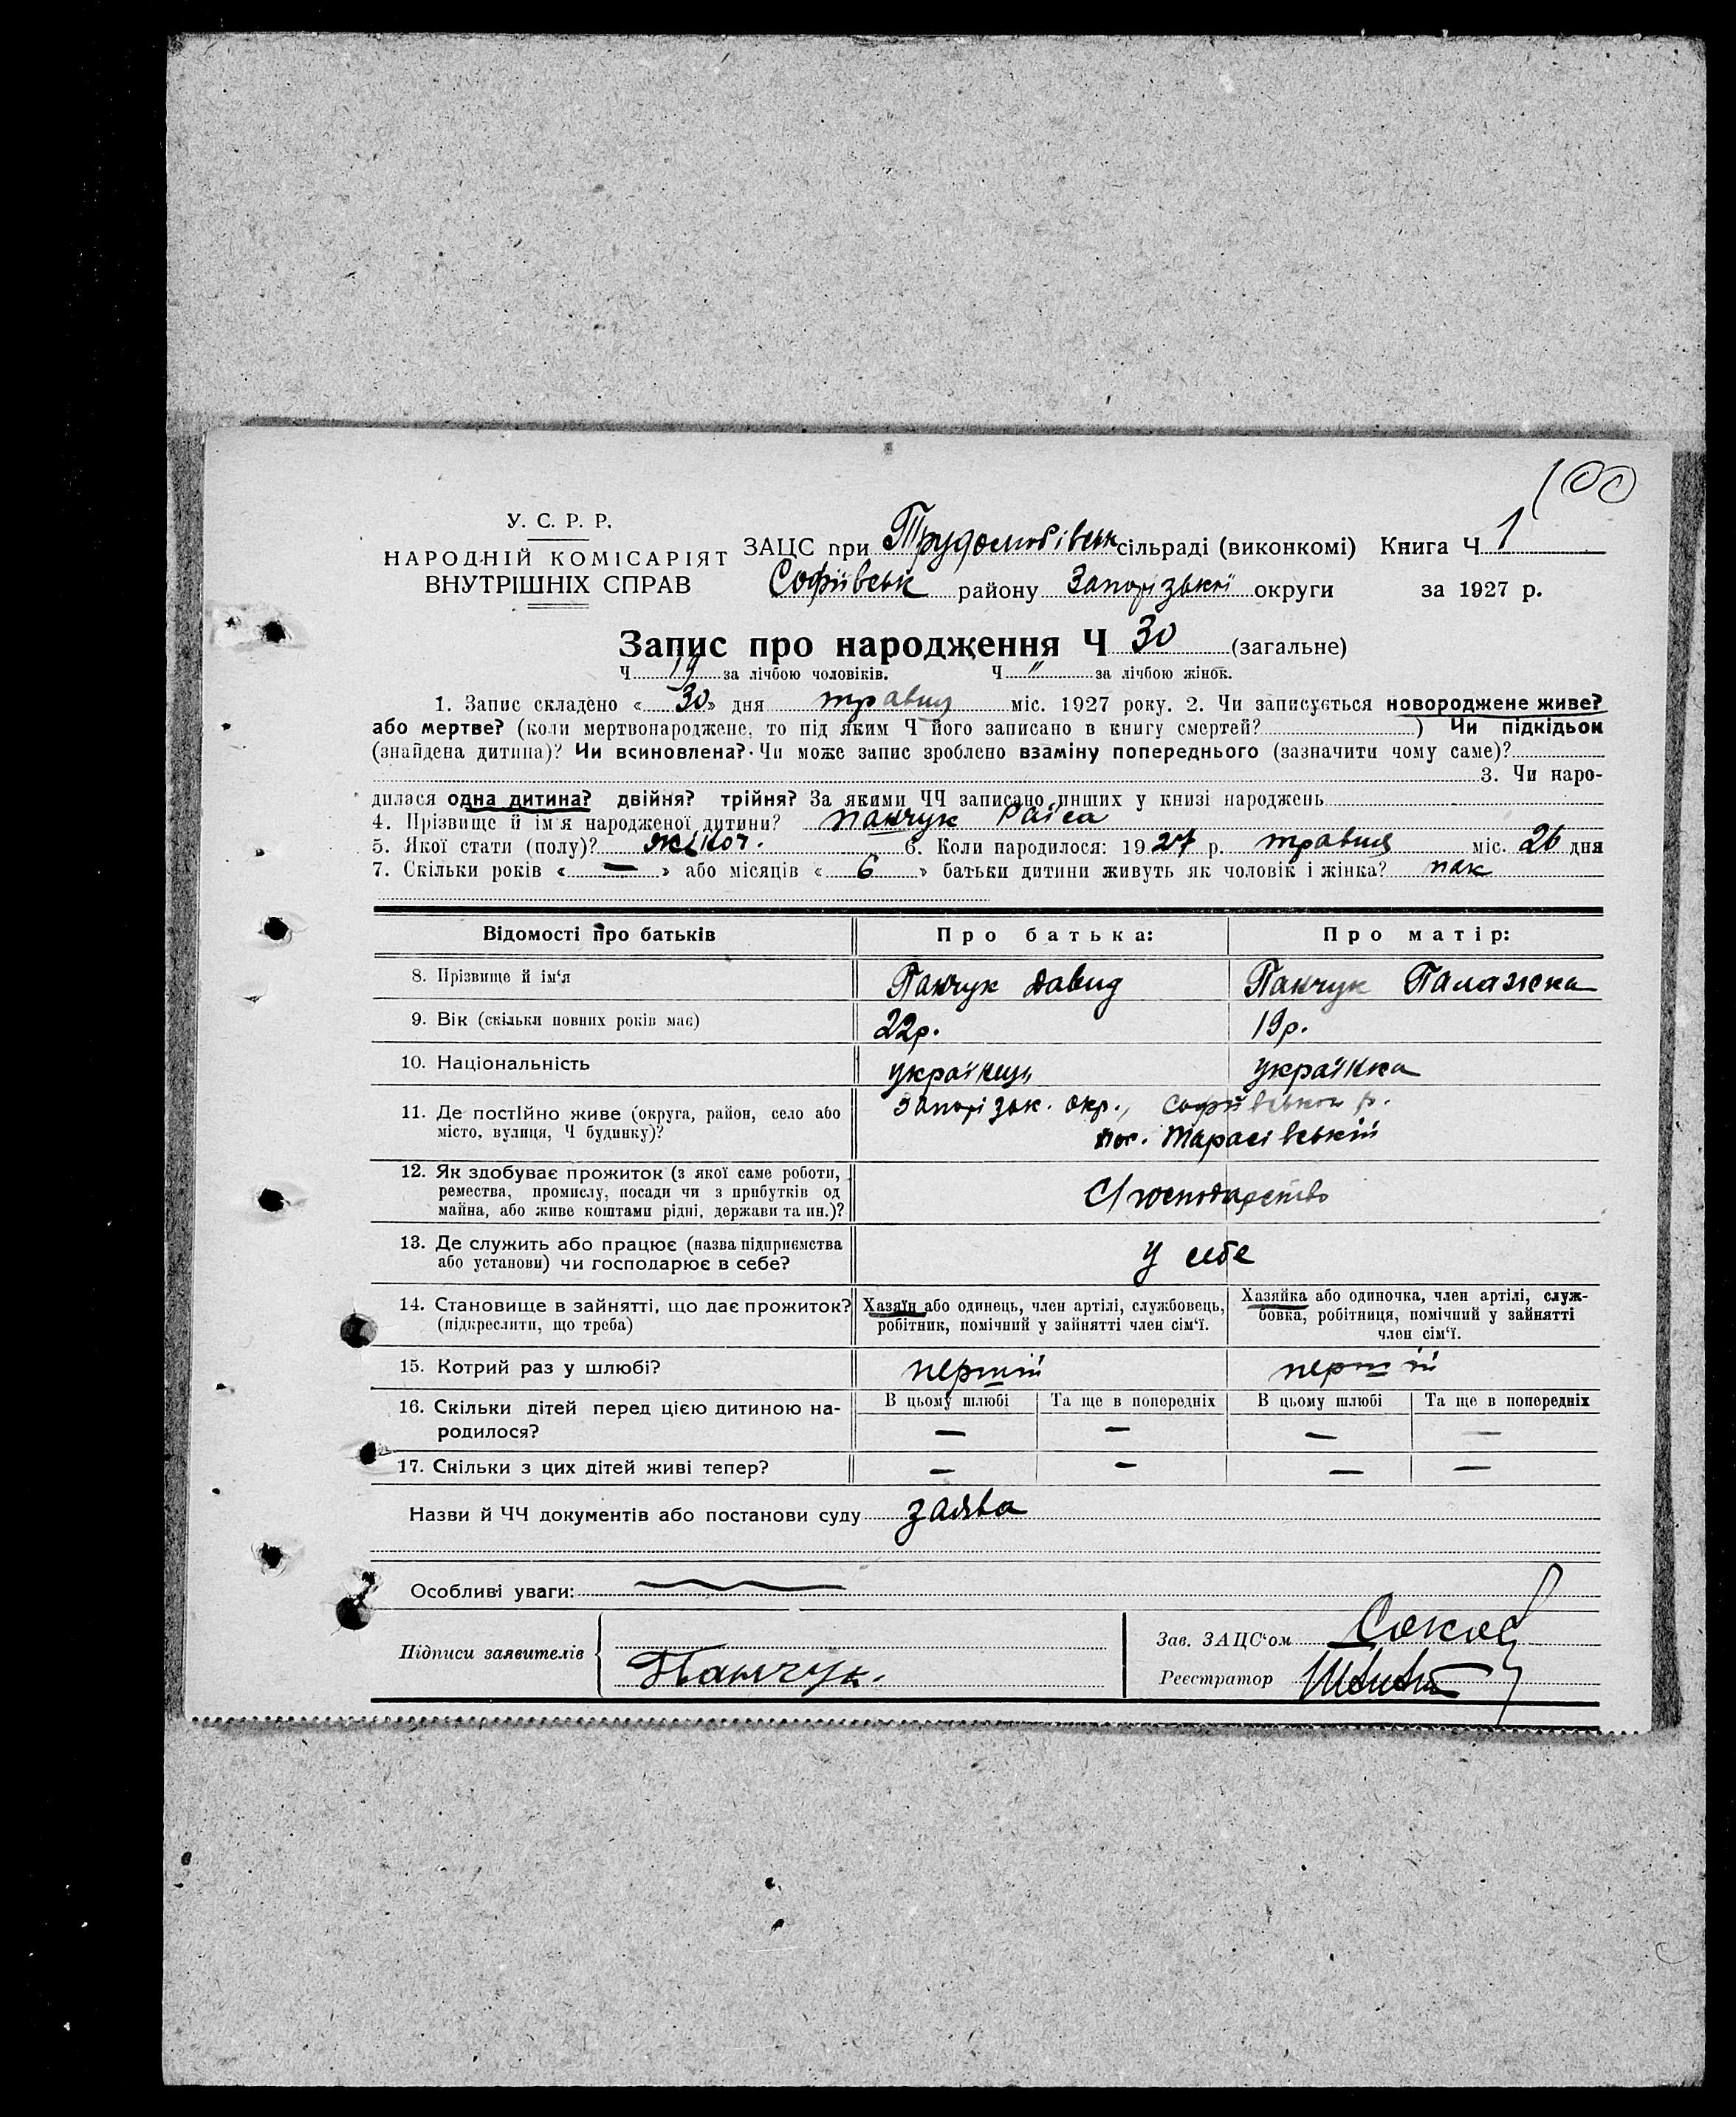 100
У. С. Р. Р.
НАРОДНІЙ КОМІСАРІЯТ
ВНУТРІШНІХ СПРАВ
ЗАЦС при Трудолюбівськ сільраді (виконкомі) Книга Ч 1
Софіївськ району Запорізької округи за 1927 р.
Запис про народження Ч 30 (загальне)
Ч 19 за лічбою чоловіків. Ч " за лічбою жінок.
1. Запис складено «30» дня травня міс. 1927 року. 2. Чи записується новороджене живе?
або мертве? (коли мертвонароджене, то під яким Ч його записано в книгу смертей? ) Чи підкідьок
(знайдена дитина)? Чи всиновлена? Чи може запис зроблено взаміну попереднього (зазначити чому саме)?
3. Чи наро-
дилася одна дитина? двійня? трійня? За якими ЧЧ записано инших у книзі народжень
4. Прізвище й ім'я народженої дитини? Панчук Раїса
5. Якої стати (полу)? жіноч. 6. Коли народилося: 1927 р. травня міс. 26 дня
7. Скільки років «—» або місяців «6» батьки дитини живуть як чоловік і жінка? так
Відомості про батьків Про батька: Про матір:
8. Прізвище й ім'я Панчук Давид Панчук Палажка
9. Вік (скільки повних років має) 22р. 19р.
10. Національність українець українка
11. Де постійно живе (округа, район, село або Запорізьк. окр., Софіївськ р.
місто, вулиця, Ч будинку)? Тарасівський
12. Як здобуває прожиток (з якої саме роботи,
ремества, промислу, посади чи з прибутків од С/господарство
майна, або живе коштами рідні, держави та ин.)?
13. Де служить або працює (назва підприємства у себе
або установи) чи господарює в себе?
14. Становище в зайнятті, що дає прожиток? Хазяїн або одинець, член артілі, службовець, Хазяйка або одиночка, член артілі, служ-
(підкреслити, що треба) робітник, помічний у зайнятті член сім'ї. бовка, робітниця, помічний у зайнятті
член сім'ї.
15. Котрий раз у шлюбі? перший перший
16. Скільки дітей перед цією дитиною на- В цьому шлюбі Та ще в попередніх В цьому шлюбі Та ще в попередніх
родилося? — — — —
17. Скільки з цих дітей живі тепер? — — — —
Назви й ЧЧ документів або постанови суду заява
Особливі уваги:
Зав. ЗАЦС'ом
Підписи заявителів Панчук.
Реєстратор